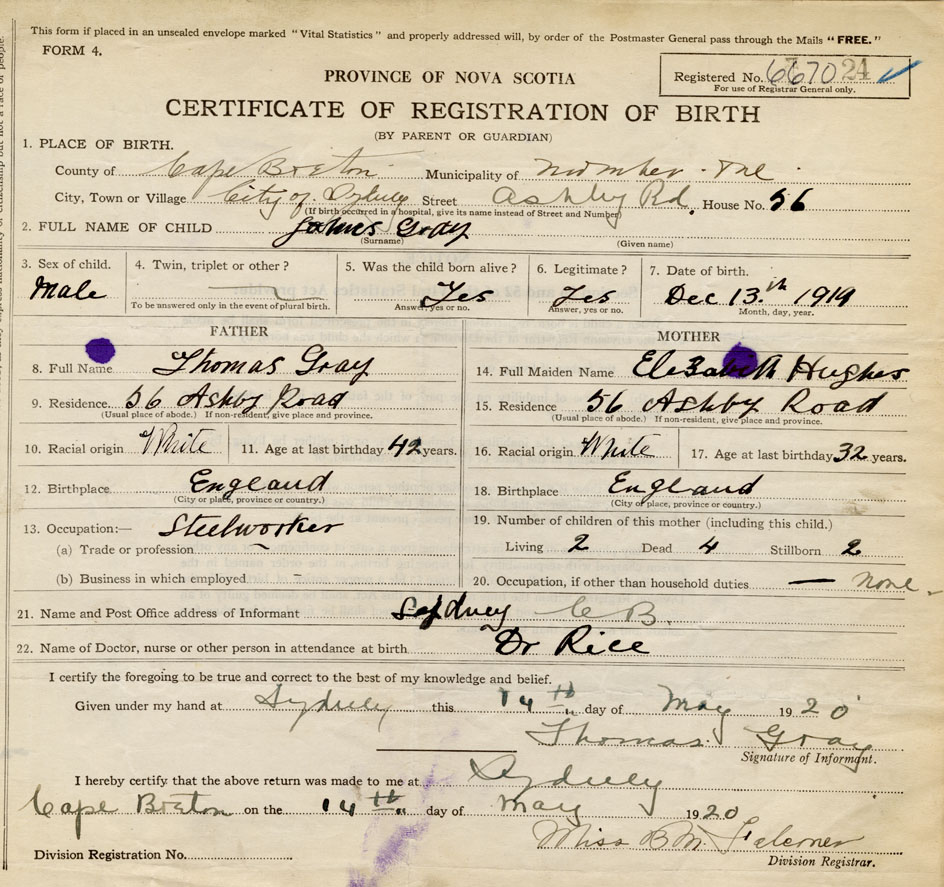 This form if placed in an unsealed envelope marked "Vital Statistics" and properly addressed will, by order of the Postmaster General pass through the Mails "FREE."
FORM 4.
PROVINCE OF NOVA SCOTIA
Registered No. 667024
For use of Registrar General only.
CERTIFICATE OF REGISTRATION OF BIRTH
(BY PARENT OR GUARDIAN)
1. PLACE OF BIRTH.
County of Cape Breton Municipality of
City, Town or Village City of Sydney Street Ashby Rd. House No. 56
(If birth occurred in a hospital, give its name instead of Street and Number)
2. FULL NAME OF CHILD James Gray
(Surname) (Given name)
3. Sex of child. 4. Twin, triplet or other? 5. Was the child born alive? 6. Legitimate? 7. Date of birth.
Male Yes Yes Dec 13.th 1919
To be answered only in the event of plural birth. Answer, yes or no. Answer, yes or no. Month, day, year.
FATHER
8. Full Name Thomas Gray
9. Residence. 56 Ashby Road
(Usual place of abode.) If non-resident, give place and province.
10. Racial origin White 11. Age at last birthday 42 years.
12. Birthplace England
(City or place, province or country.)
13. Occupation:— Steelworker
(a) Trade or profession
(b) Business in which employed -
MOTHER
14. Full Maiden Name Elizabeth Hughes
15. Residence 56 Ashby Road
(Usual place of abode.) If non-resident, give place and province.
16. Racial origin White 17. Age at last birthday 32 years.
18. Birthplace England
(City or place, province or country.)
19. Number of children of this mother (including this child.)
Living 2 Dead 4 Stillborn 2
20. Occupation, if other than household duties — none
21. Name and Post Office address of Informant Sydney C B.
22. Name of Doctor, nurse or other person in attendance at birth Dr Rice
I certify the foregoing to be true and correct to the best of my knowledge and belief.
Given under my hand at Sydney this 14th day of May 1920
Thomas Gray
Signature of Informant.
I hereby certify that the above return was made to me at Sydney
Cape Breton on the 14th day of May 1920
Miss B M Falconer
Division Registration No.
Division Registrar.